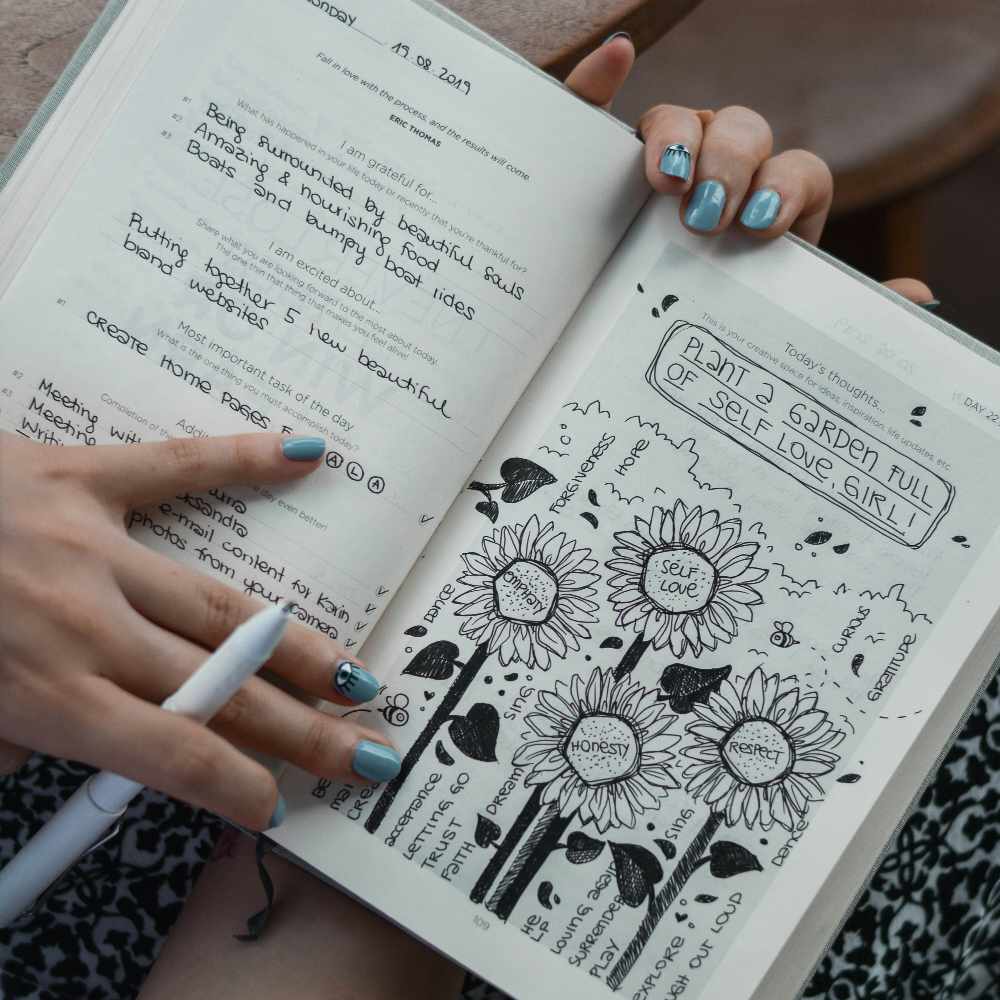 19.08.2019
Fall in love with the process, and the results will come.
ERIC THOMAS
I am grateful for...
What has happened in your life today or recently that you're thankful for?
#1 Being surrounded by beautiful souls
#2 Amazing & nourishing food
#3 Boats and bumpy boat rides
I am excited about...
Share what you are looking forward to the most about today.
The one thin that thing that makes you feel alive!
Putting together 5 new beautiful
brand websites
Most important task of the day
What is the one thing you must accomplish today?
#1 CREATE HOME PAGES
A L A
Completion of the
#2 Meeting
#3 Meeting
day even better!
e-mail content for Karin
photos from your camera
DAY 22
Today's thoughts...
This is your creative space for ideas, inspiration, life updates, etc.
PLANT A GARDEN FULL
OF SELF LOVE, GIRL!
FORGIVENESS
HOPE
EMPHATY
SELF
LOVE
DANCE
CURIOUS
GRATITUDE
SING
HONESTY
RESPECT
acceptance
LETTING GO
TRUST
FAITH
DREAM
SING
DANCE
HELP
LOVING again
SURRENDER
PLAY
EXPLORE
OUT LOUD
109